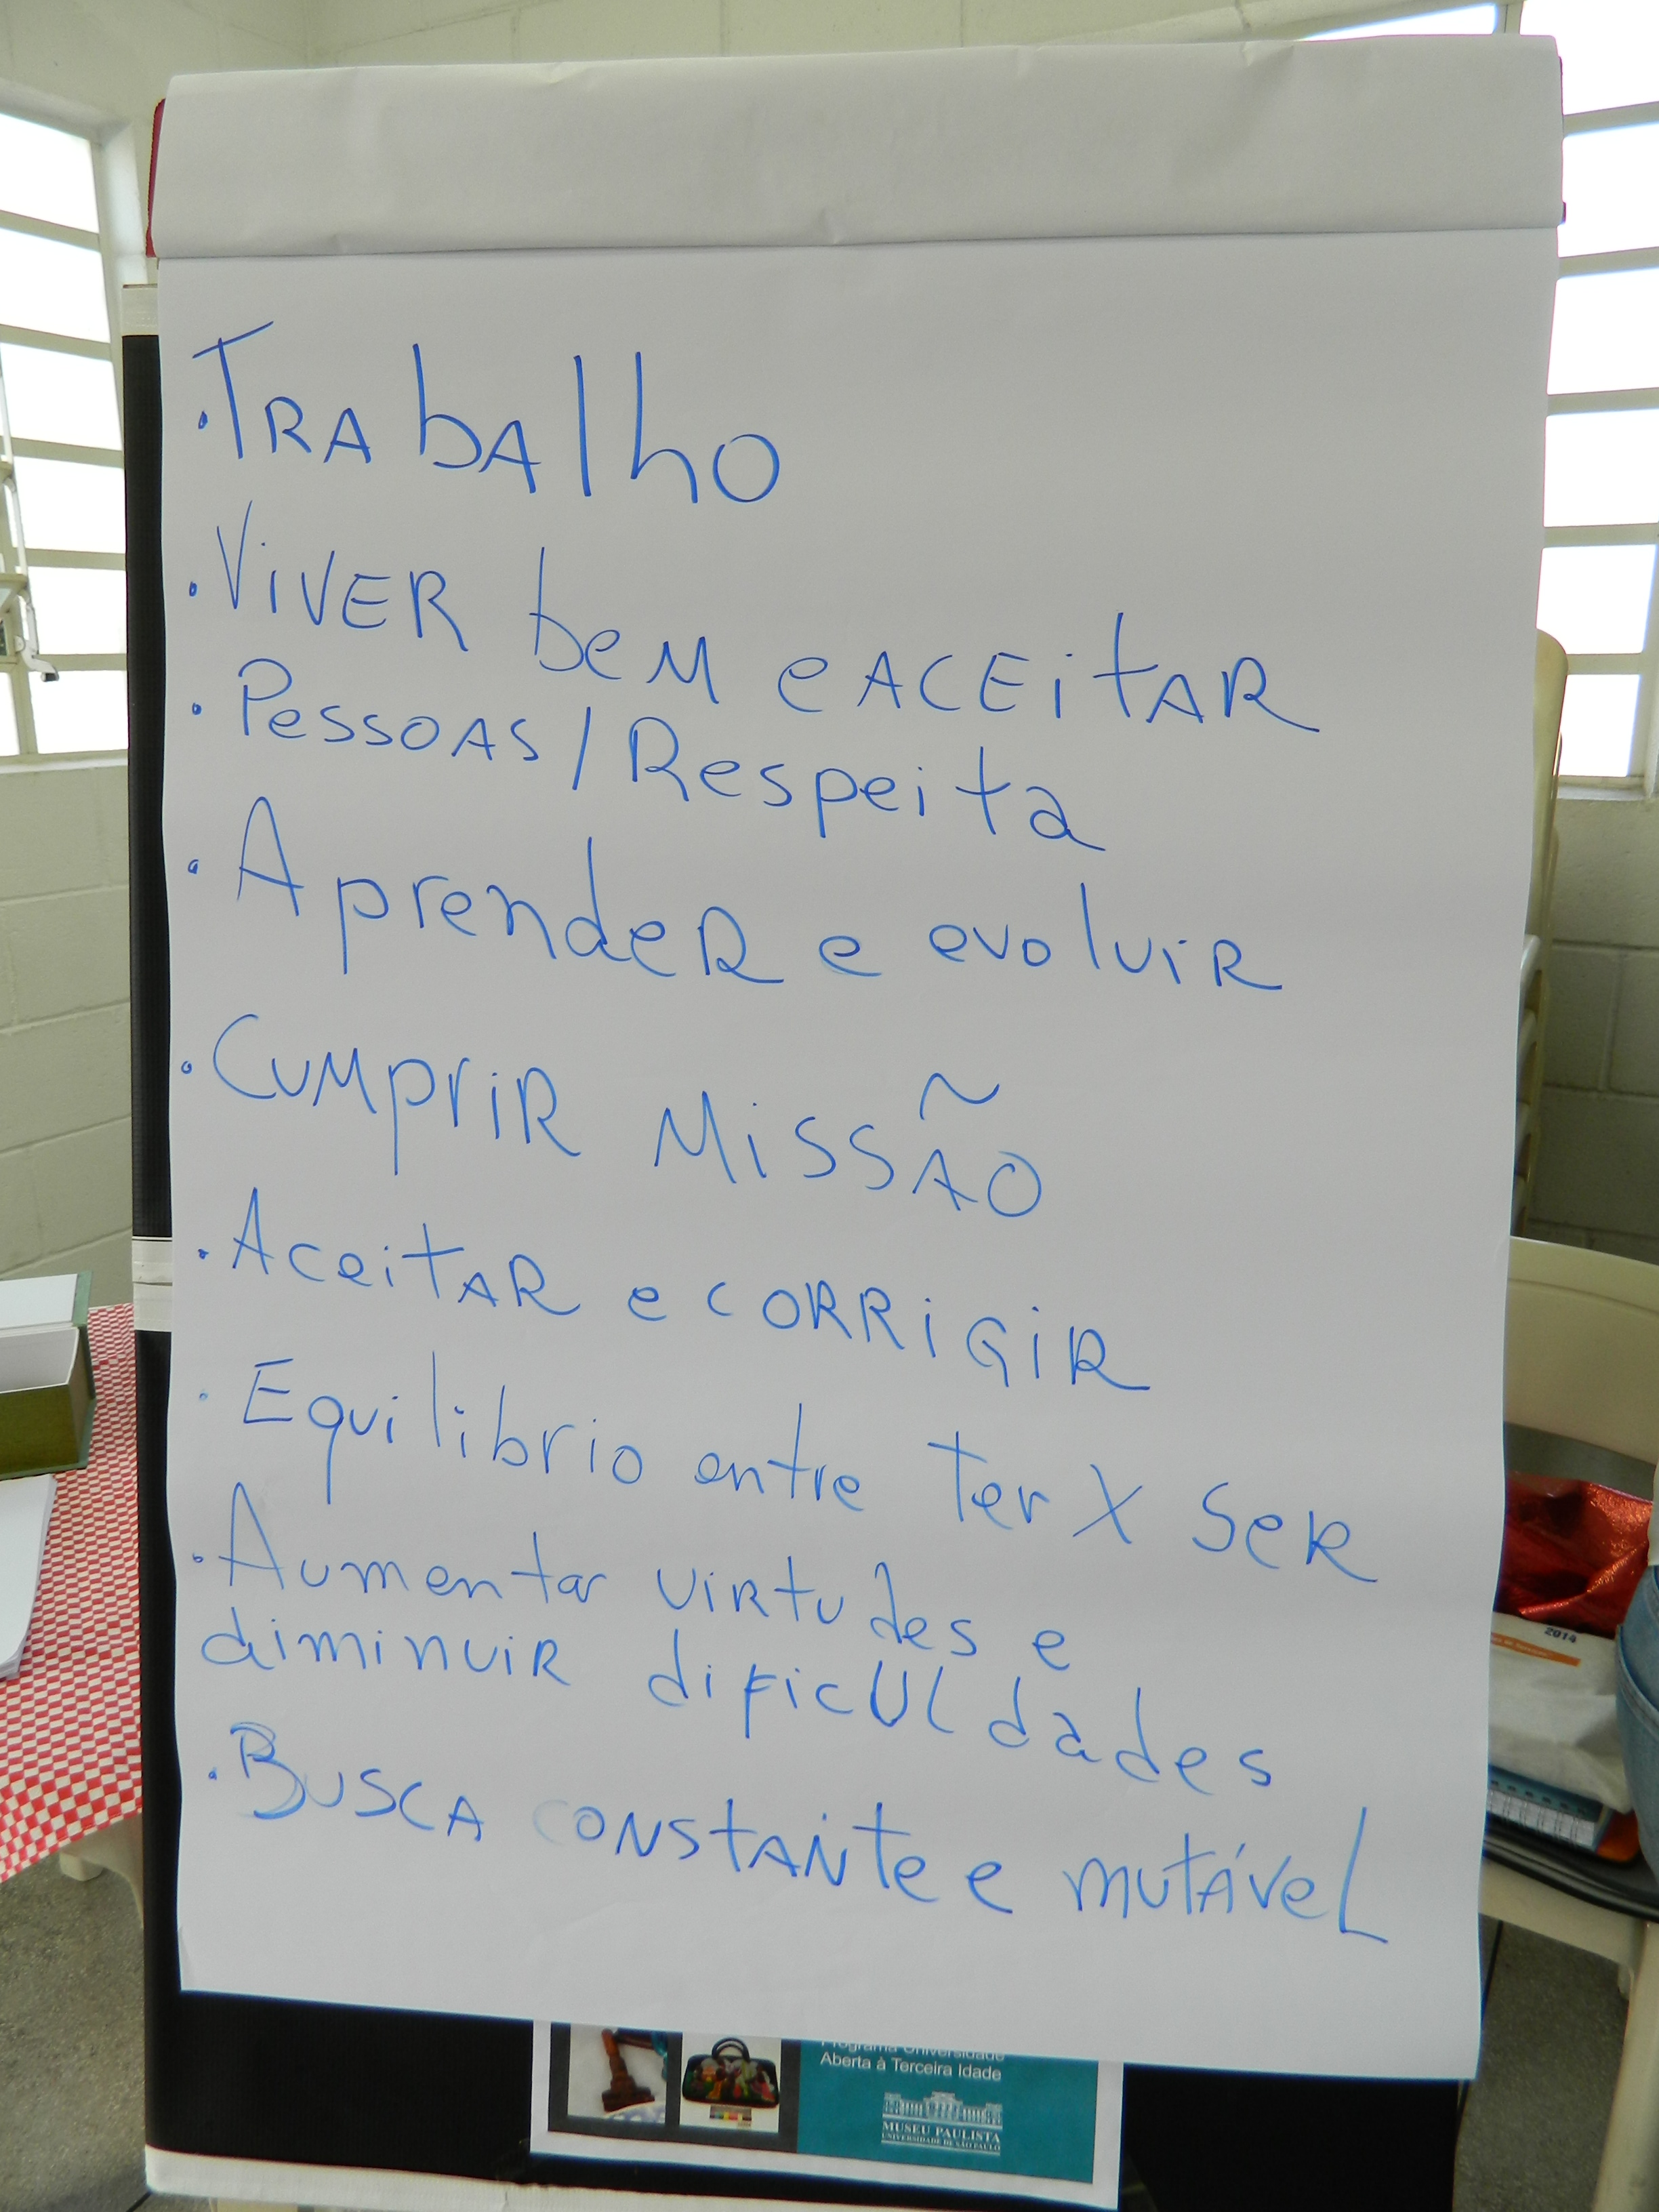 • Trabalho
• Viver bem e aceitar
• Pessoas / Respeita
• Aprender e evoluir
• Cumprir Missão
• Aceitar e corrigir
• Equilibrio entre ter X ser
• Aumentar virtudes e
diminuir dificuldades
• Busca constante e mutável
2014
Programa Universidade
Aberta à Terceira Idade
MUSEU PAULISTA
UNIVERSIDADE DE SÃO PAULO